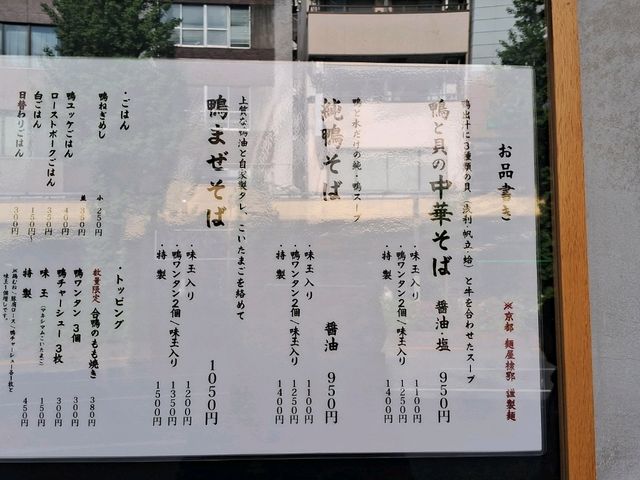 お品書き
※京都 麺屋棣鄂 謹製麺
鴨出汁に3種類の貝(浅利 帆立 蛤)と牛を合わせたスープ
鴨と貝の中華そば 醤油・塩 950円
・味玉入り 1100円
・鴨ワンタン2個/味玉入り 1250円
・特製 1400円
鴨と水だけの純・鴨スープ
純鴨そば 醤油 950円
・味玉入り 1100円
・鴨ワンタン2個/味玉入り 1250円
・特製 1400円
上質な鴨油と自家製タレ、こいたまごを絡めて
鴨まぜそば 1050円
・味玉入り 1200円
・鴨ワンタン2個/味玉入り 1350円
・特製 1500円
・ごはん
鴨ねぎめし 小 250円
並 350円
鴨ユッケごはん 400円
ローストポークごはん 350円
白ごはん 150円~
日替わりごはん 300円
・トッピング
数量限定 合鴨のもも焼き 380円
鴨ワンタン 3個 300円
鴨チャーシュー 3枚 300円
味玉 150円
特製 450円